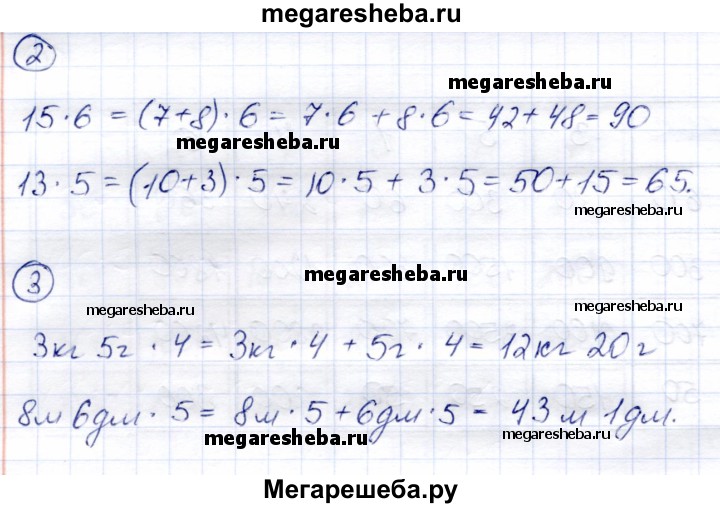 megaresheba.ru
2
megaresheba.ru
15·6 = (7+8)·6 = 7·6 + 8·6 = 42+48 = 90
megaresheba.ru
13·5 = (10+3)·5 = 10·5 + 3·5 = 50+15 = 65.
megaresheba.ru
3
megaresheba.ru
megaresheba.ru
megaresheba.ru
3кг 5г · 4 = 3кг · 4 + 5г · 4 = 12кг 20г
8м 6дм · 5 = 8м · 5 + 6дм · 5 = 43м 1дм.
megaresheba.ru
megaresheba.ru
Мегарешеба.ру